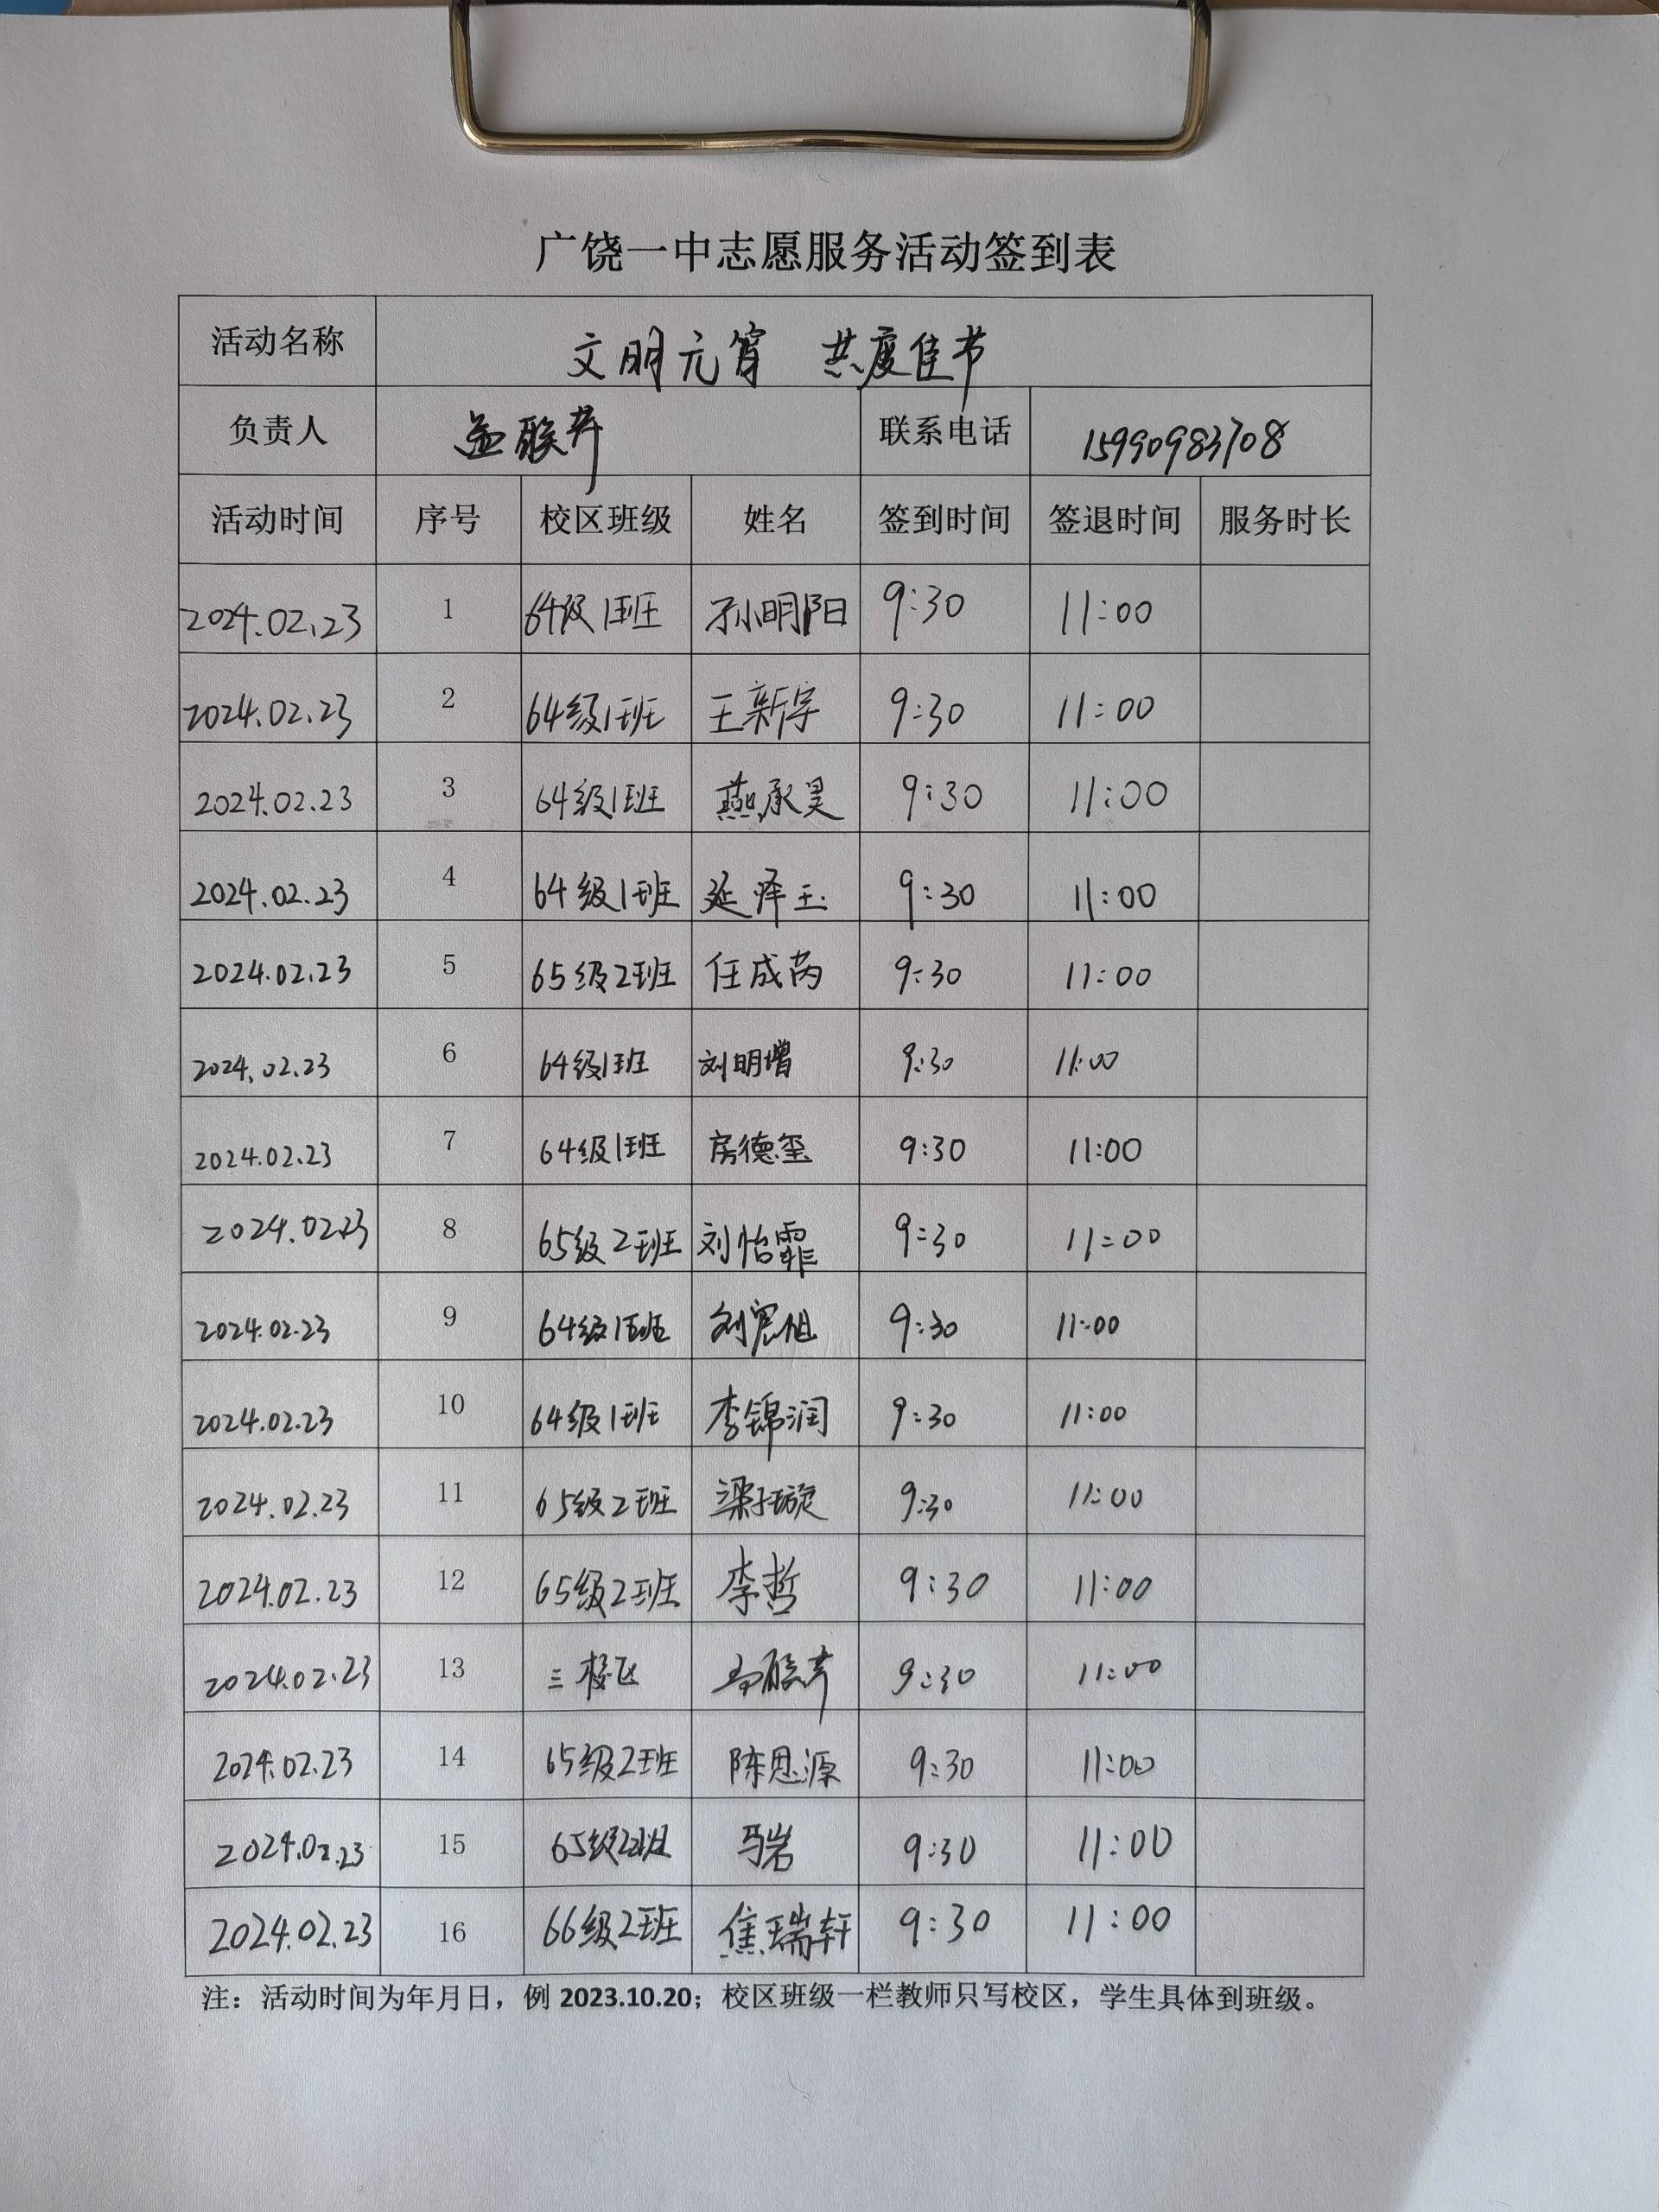 广饶一中志愿服务活动签到表
活动名称 文明元宵 共度佳节
负责人 联系电话 15990983708
活动时间 序号 校区班级 姓名 签到时间 签退时间 服务时长
2024.02.23 1 64级1班 孙明阳 9:30 11:00
2024.02.23 2 64级1班 王新宇 9:30 11:00
2024.02.23 3 64级1班 燕承昊 9:30 11:00
2024.02.23 4 64级1班 延泽玉 9:30 11:00
2024.02.23 5 65级2班 任成芮 9:30 11:00
2024.02.23 6 64级1班 刘明增 9:30 11:00
2024.02.23 7 64级1班 房德玺 9:30 11:00
2024.02.23 8 65级2班 刘怡霏 9:30 11:00
2024.02.23 9 64级1班 9:30 11:00
2024.02.23 10 64级1班 李锦润 9:30 11:00
2024.02.23 11 65级2班 梁子璇 9:30 11:00
2024.02.23 12 65级2班 李哲 9:30 11:00
2024.02.23 13 三校区 9:30 11:00
2024.02.23 14 65级2班 陈思源 9:30 11:00
2024.02.23 15 65级2班 马岩 9:30 11:00
2024.02.23 16 66级2班 焦瑞轩 9:30 11:00
注：活动时间为年月日，例 2023.10.20；校区班级一栏教师只写校区，学生具体到班级。